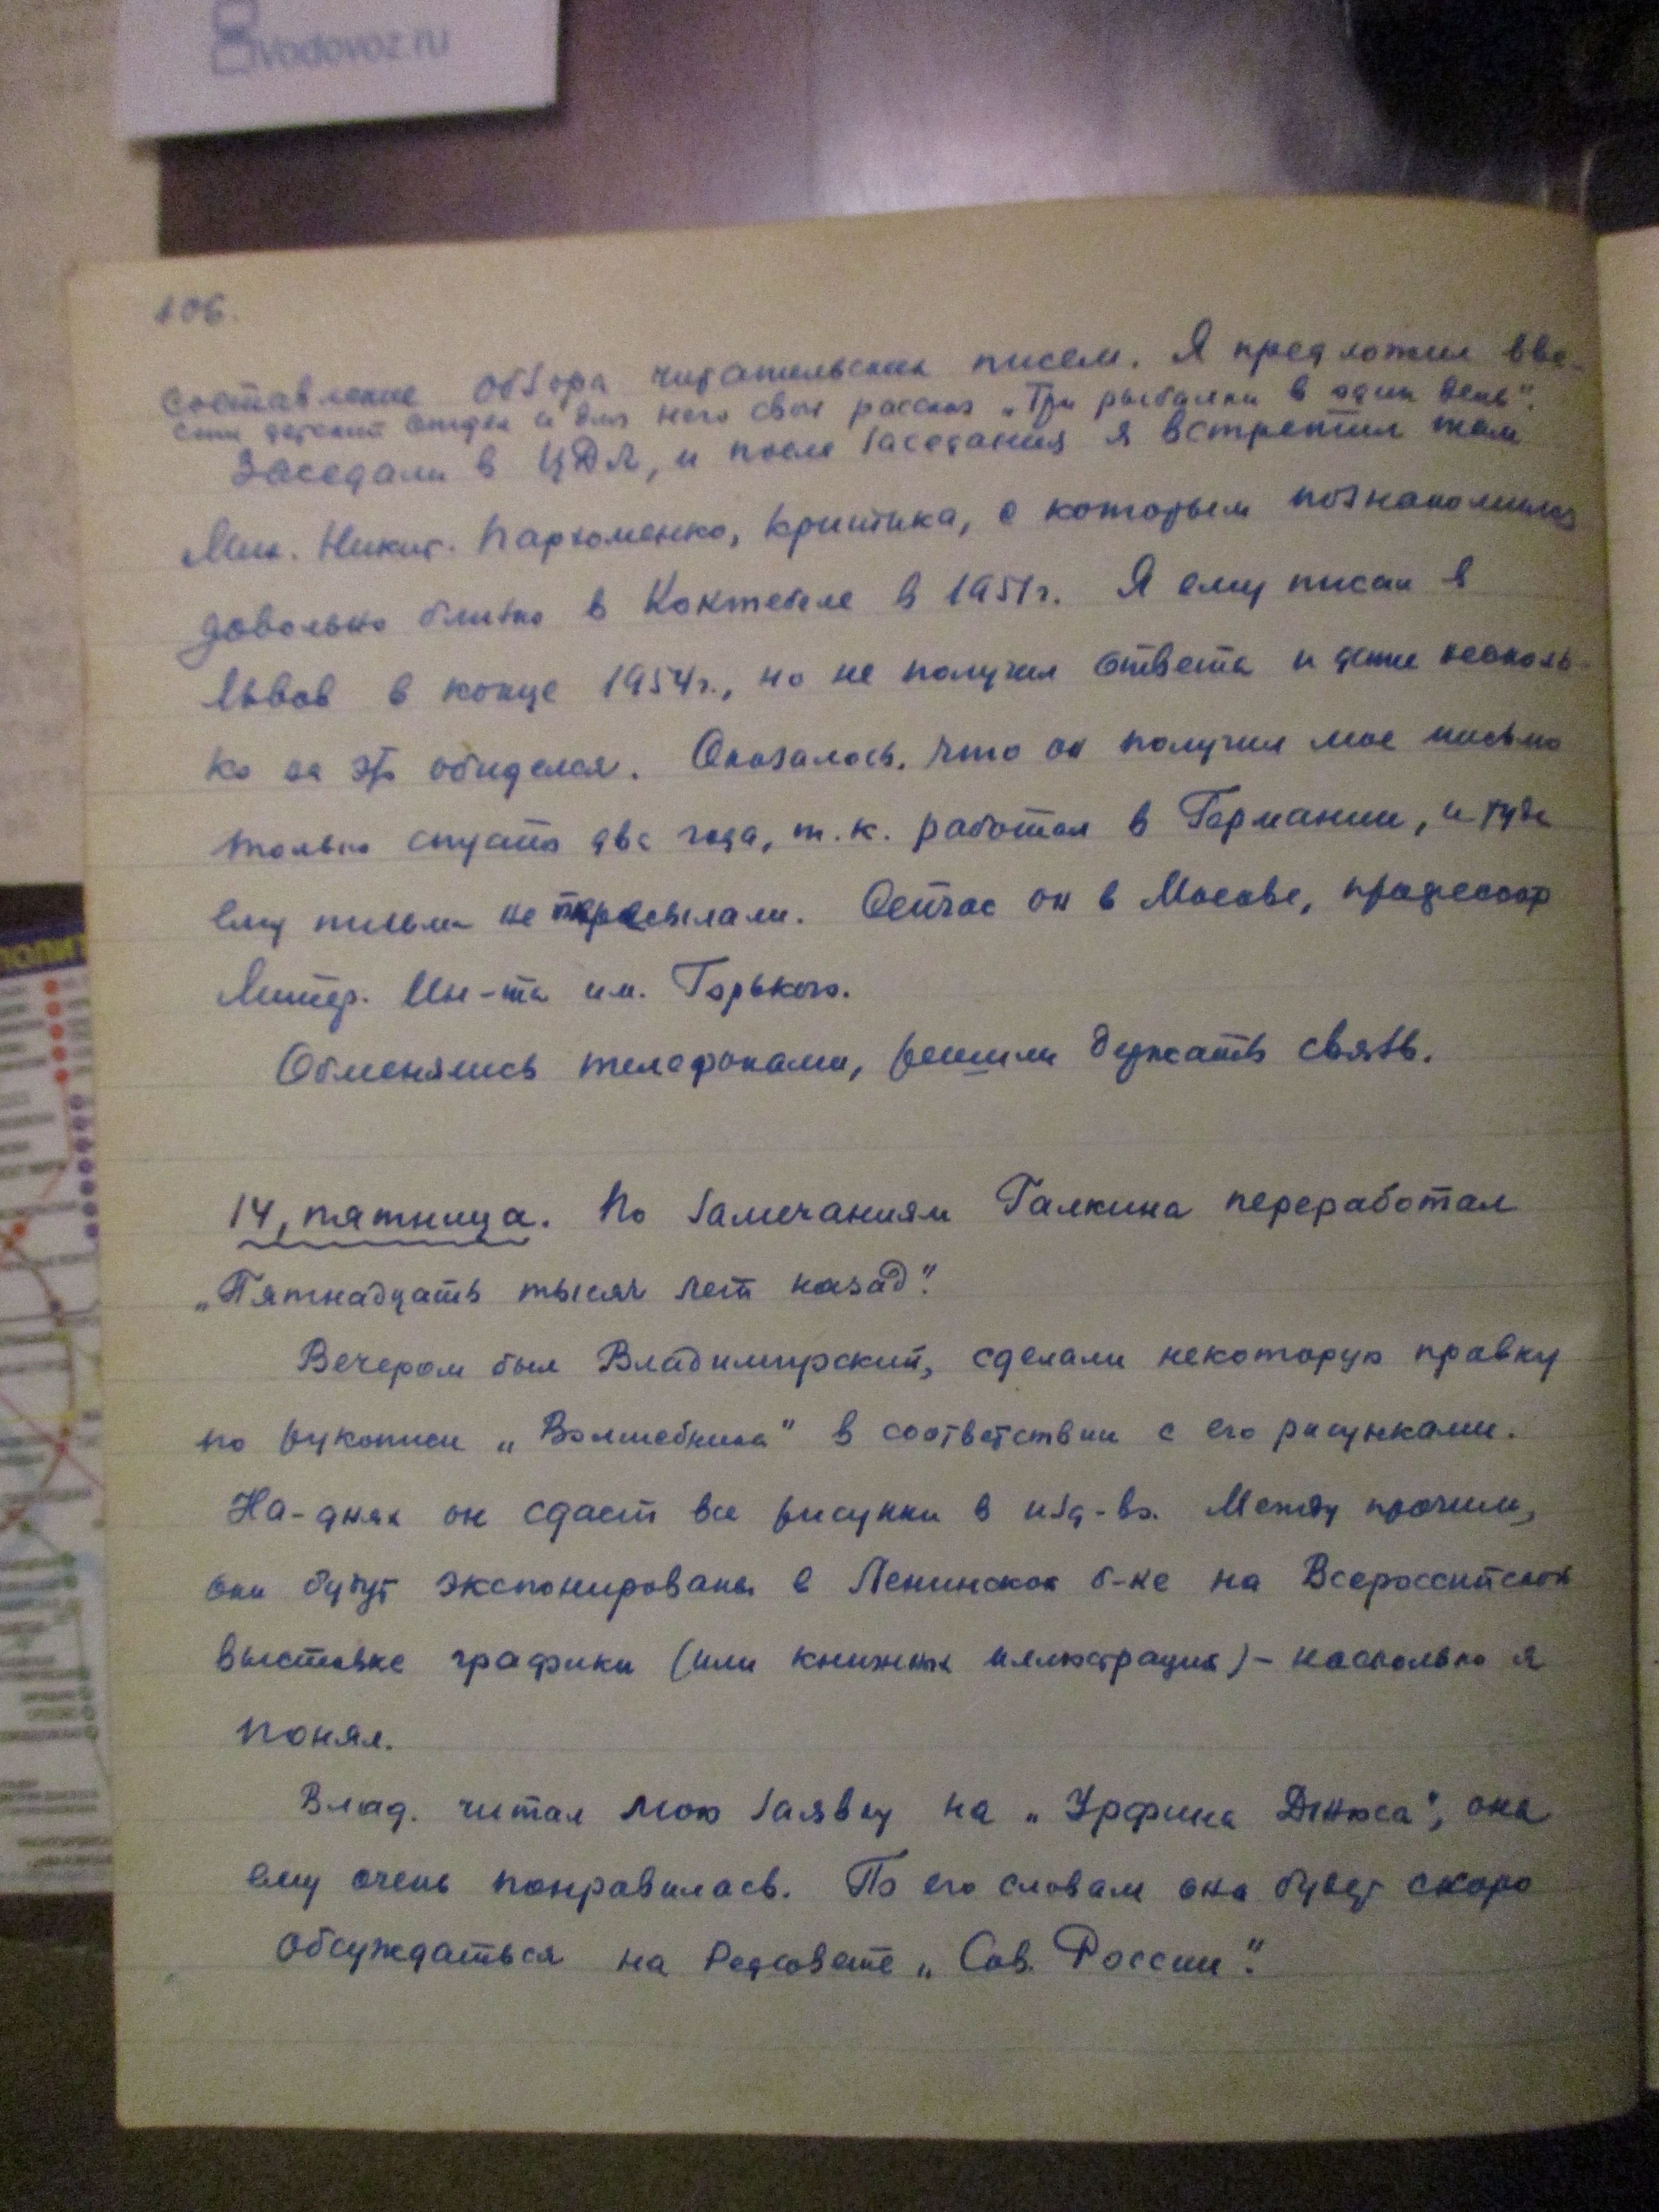 vodovoz.ru
106.
составление обзора читательских писем. Я предложил вве-
сти детский отдел и дал для него свой рассказ „Три рыбалки в один день“.
Заседали в ЦДЛ, и после заседания я встретил там
Мих. Никит. Пархоменко, критика, с которым познакомился
довольно близко в Коктебеле в 1951г. Я ему писал в
Львов в конце 1954г., но не получил ответа и даже несколь-
ко за это обиделся. Оказалось, что он получил мое письмо
только спустя два года, т.к. работал в Германии, и туда
ему письма не пересылали. Сейчас он в Москве, профессор
Литер. Ин-та им. Горького.
Обменялись телефонами, решили держать связь.
14, пятница. По замечаниям Галкина переработал
„Пятнадцать тысяч лет назад“.
Вечером был Владимирский, сделали некоторую правку
по рукописи „Волшебника“ в соответствии с его рисунками.
На-днях он сдаст все рисунки в изд-во. Между прочим,
они будут экспонированы в Ленинской б-ке на Всероссийской
выставке графики (или книжных иллюстраций) – насколько я
понял.
Влад. читал мою заявку на „Урфина Джюса“, она
ему очень понравилась. По его словам она будет скоро
обсуждаться на Редсовете „Сов. России“.